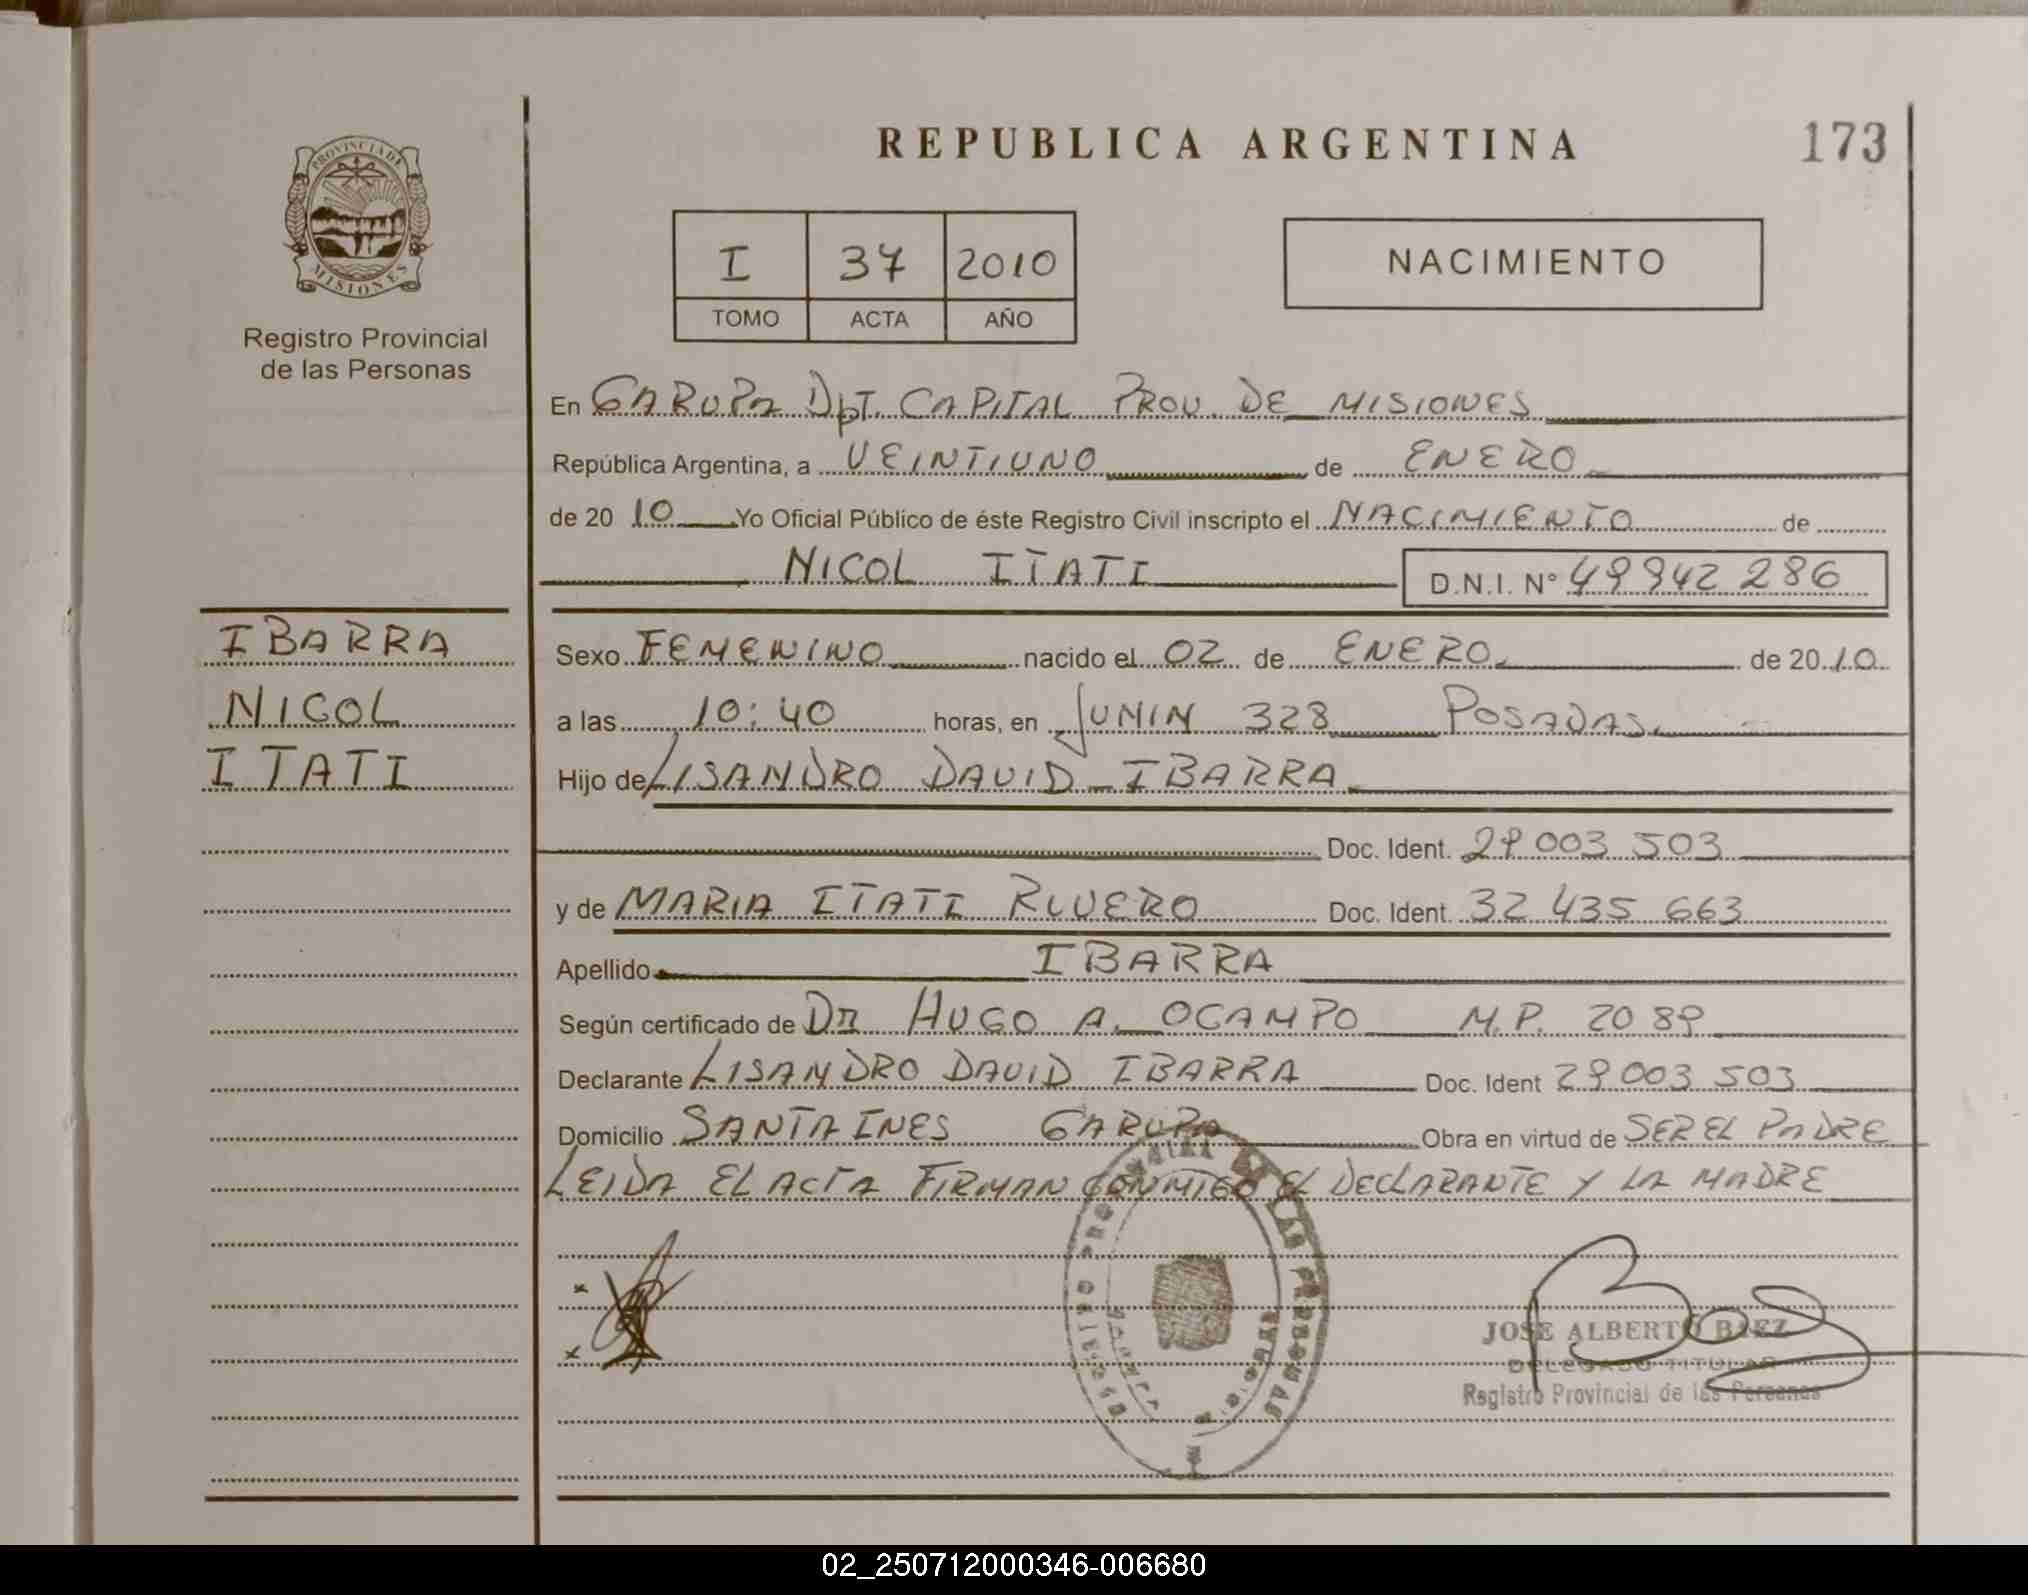 REPUBLICA ARGENTINA
173
PROVINCIA DE
MISIONES
Registro Provincial
de las Personas
I 37 2010
TOMO ACTA AÑO
NACIMIENTO
En GARUPA DPT. CAPITAL PROV. DE MISIONES
República Argentina, a VEINTIUNO de ENERO
de 20 10 Yo Oficial Público de éste Registro Civil inscripto el NACIMIENTO de
NICOL ITATI D.N.I. N° 49942 286
IBARRA
NICOL
ITATI
Sexo FEMENINO nacido el 02 de ENERO de 20 10
a las 10:40 horas, en JUNIN 328 POSADAS
Hijo de LISANDRO DAVID IBARRA
Doc. Ident. 29 003 503
y de MARIA ITATI RIVERO Doc. Ident. 32 435 663
Apellido IBARRA
Según certificado de DR HUGO A. OCAMPO M.P. 2089
Declarante LISANDRO DAVID IBARRA Doc. Ident 29 003 503
Domicilio SANTA INES GARUPA Obra en virtud de SER EL PADRE
LEIDA EL ACTA FIRMAN CONMIGO EL DECLARANTE Y LA MADRE
JOSE ALBERTO BAEZ
DELEGADO TITULAR
Registro Provincial de las Personas
02_250712000346-006680